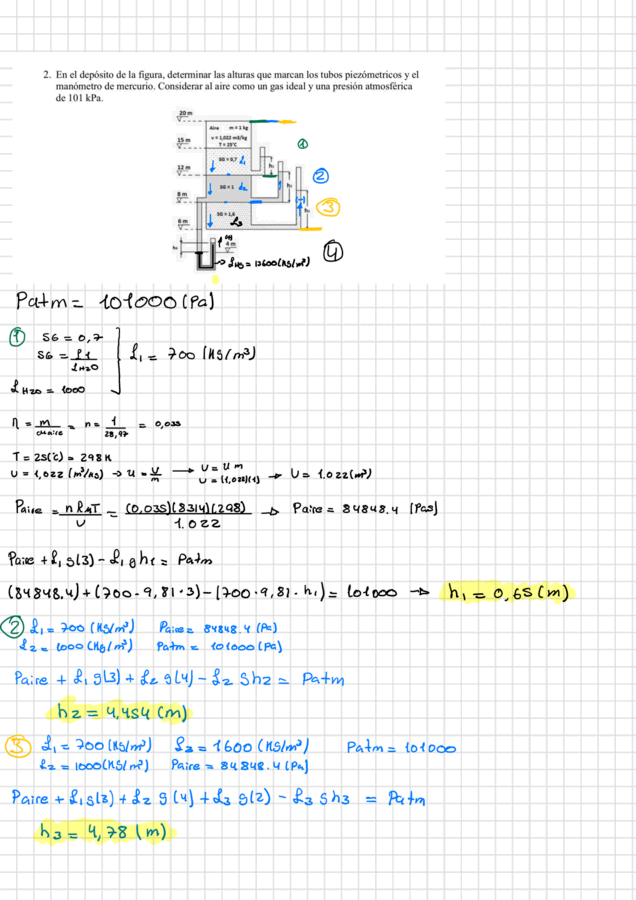 2. En el depósito de la figura, determinar las alturas que marcan los tubos piezómetricos y el
manómetro de mercurio. Considerar al aire como un gas ideal y una presión atmosférica
de 101 kPa.
20 m
Aire m = 1 kg
v = 1,022 m3/kg
T = 25°C
15 m
①
SG = 0,7 ρ1
h₁
12 m
②
SG = 1 ρ2
8 m
③
SG = 1,6
ρ3
6 m
4 m
④
ρHg = 13600 (kg/m³)
Patm = 101000 (Pa)
① SG = 0,7
SG = ρ1/ρH2O
ρ1 = 700 (kg/m³)
ρH2O = 1000
n = m/Maire = n = 1/28,97 = 0,035
T = 25(°C) = 298 K
υ = 1,022 (m³/kg) → υ = V/m → V = υ m
V = (1,022)(1) → V = 1.022 (m³)
Paire = nRuT/V = (0,035)(8314)(298)/1.022 → Paire = 84848.4 [Pas]
Paire + ρ1 g(3) - ρ1 g h1 = Patm
(84848.4) + (700 · 9,81 · 3) - (700 · 9,81 · h1) = 101000 → h1 = 0,65 (m)
② ρ1 = 700 (kg/m³) Paire = 84848.4 (Pa)
ρ2 = 1000 (kg/m³) Patm = 101000 (Pa)
Paire + ρ1 g(3) + ρ2 g(4) - ρ2 g h2 = Patm
h2 = 4,454 (m)
③ ρ1 = 700 (kg/m³) ρ3 = 1600 (kg/m³) Patm = 101000
ρ2 = 1000 (kg/m³) Paire = 84848.4 (Pa)
Paire + ρ1 g(3) + ρ2 g(4) + ρ3 g(2) - ρ3 g h3 = Patm
h3 = 4,78 (m)